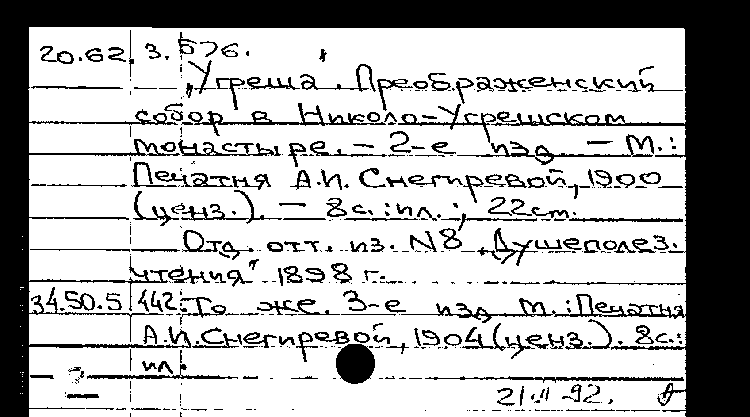 20.62.3.576.
„Угреша. Преображенский
собор в Николо-Угрешском
монастыре. – 2-е изд – М.:
Печатня А.И. Снегиревой, 1900
(ценз.). – 8с.: ил.; 22см.
Отд. отт. из. N8 „Душеполез.
чтения" 1898 г.
34.50.5.442: То же. 3-е изд М.: Печатня
А.И. Снегиревой, 1904 (ценз.). 8с.:
ил.
21.II.92.